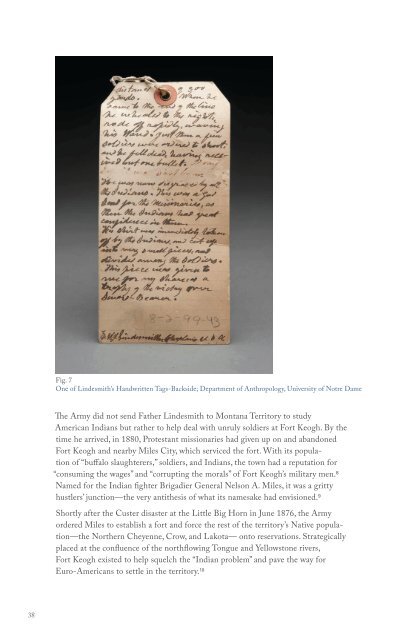 distance
yards. When he
came to the end of the line
he wheeled to the right,
rode off rapidly, waving
his Hand. Just then a few
soldiers were ordered to shoot
and he fell dead, having rece-
ived but one bullet.
He was now disgraced by all
the Indians. This was a God
send for the Missionaries, as
then the Indians had great
confidence in them.
His shirt was immediately taken
off by the Indians, and cut up
into very small pieces, and
divides among the Soldiers.
This piece was given to
me for my share as a
trophy of the victory over
Sword Bearer.
8-2-99-43
Lindesmith, Chaplain U.S.A.
Fig. 7
One of Lindesmith's Handwritten Tags-Backside; Department of Anthropology, University of Notre Dame
The Army did not send Father Lindesmith to Montana Territory to study
American Indians but rather to help deal with unruly soldiers at Fort Keogh. By the
time he arrived, in 1880, Protestant missionaries had given up on and abandoned
Fort Keogh and nearby Miles City, which serviced the fort. With its popula-
tion of "buffalo slaughterers," soldiers, and Indians, the town had a reputation for
"consuming the wages" and "corrupting the morals" of Fort Keogh's military men.⁸
Named for the Indian fighter Brigadier General Nelson A. Miles, it was a gritty
hustlers' junction—the very antithesis of what its namesake had envisioned.⁹
Shortly after the Custer disaster at the Little Big Horn in June 1876, the Army
ordered Miles to establish a fort and force the rest of the territory's Native popula-
tion—the Northern Cheyenne, Crow, and Lakota— onto reservations. Strategically
placed at the confluence of the northflowing Tongue and Yellowstone rivers,
Fort Keogh existed to help squelch the "Indian problem" and pave the way for
Euro-Americans to settle in the territory.¹⁰
38